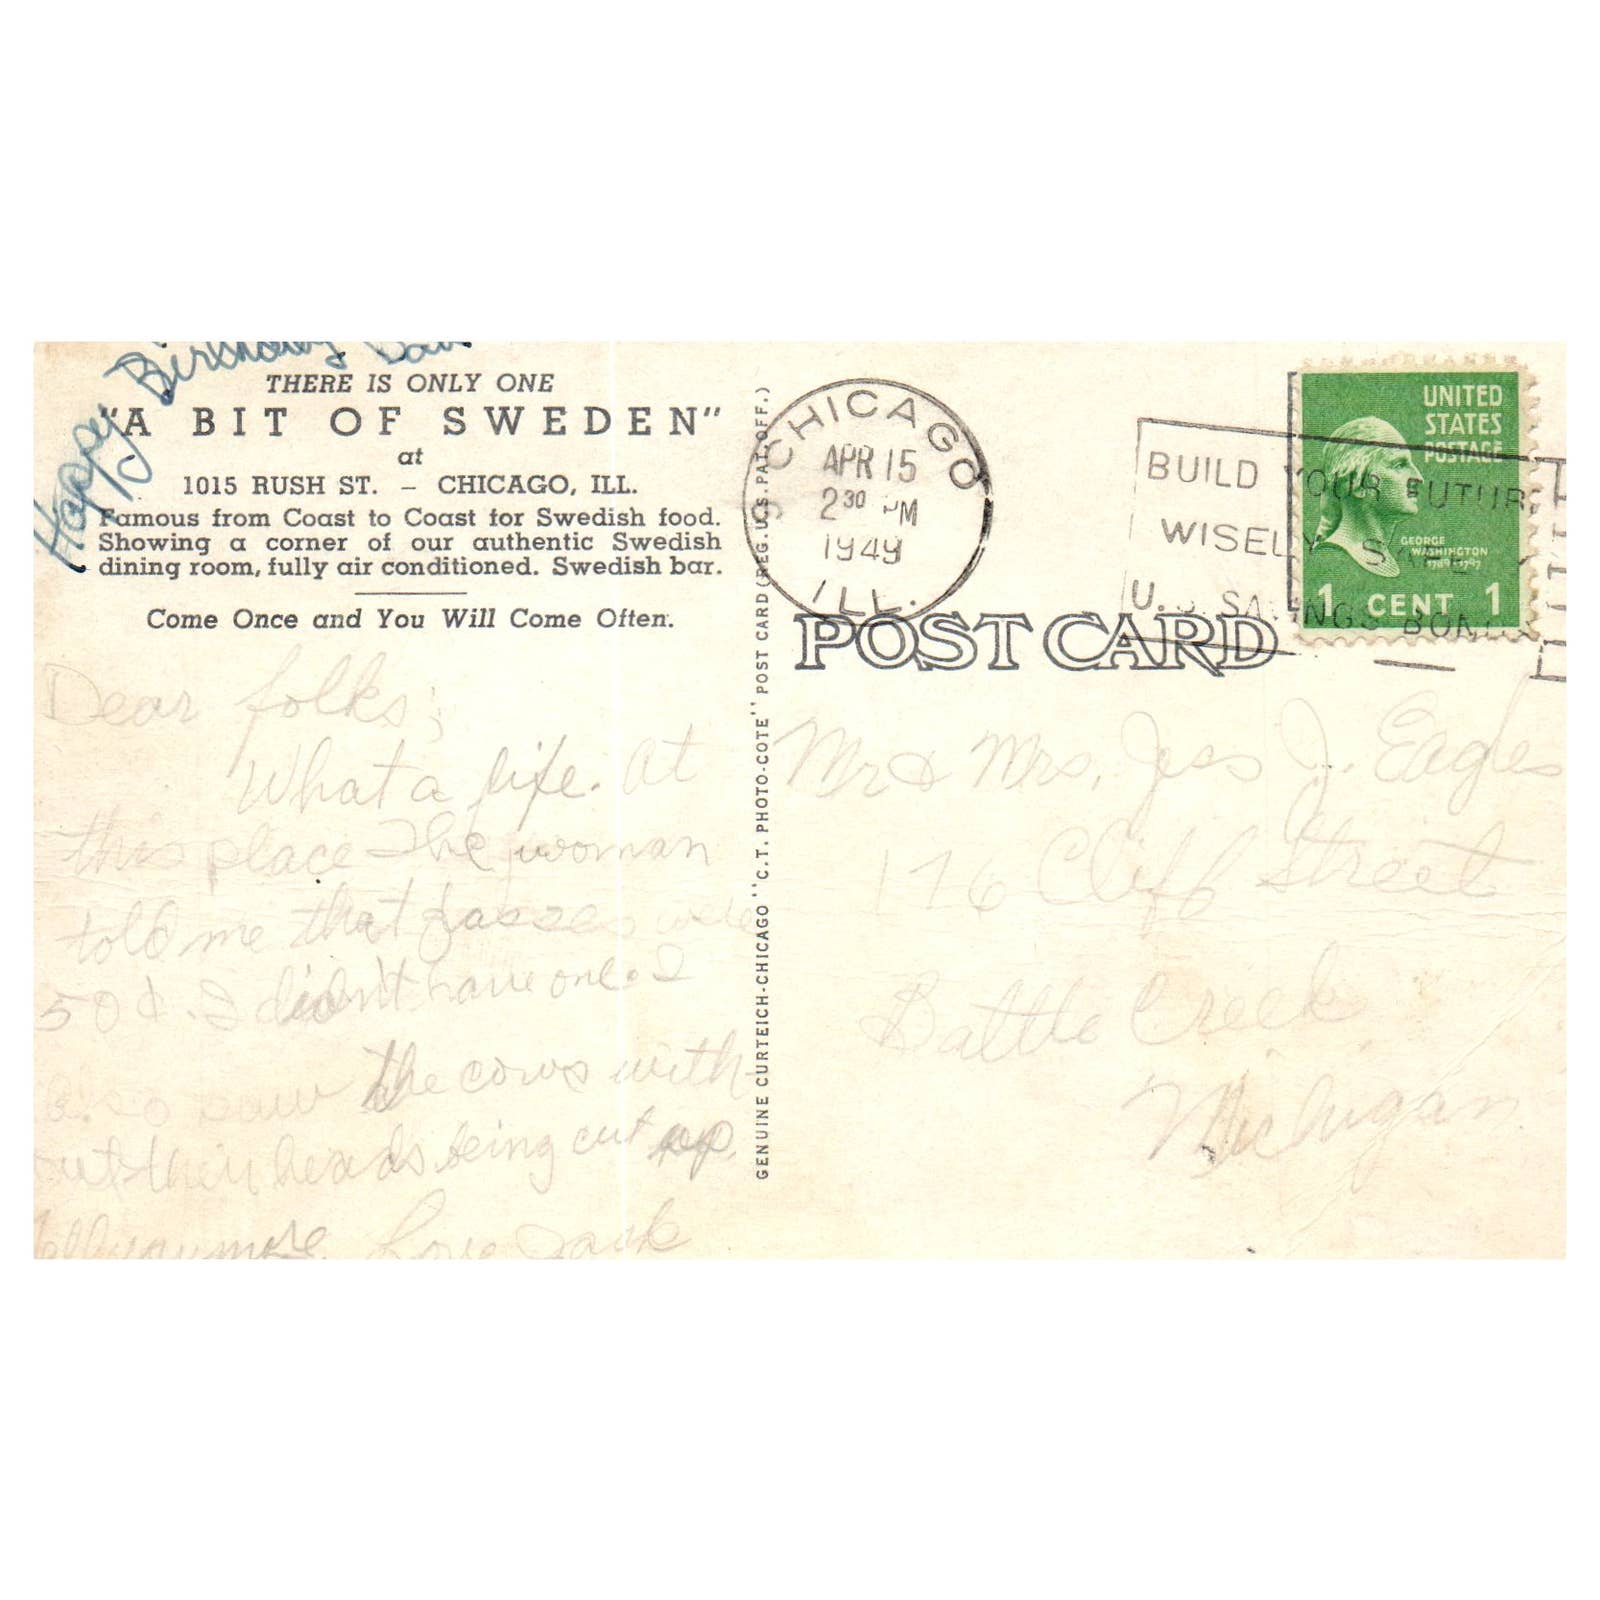 Happy Birthday
THERE IS ONLY ONE
"A BIT OF SWEDEN"
at
1015 RUSH ST. – CHICAGO, ILL.
Famous from Coast to Coast for Swedish food.
Showing a corner of our authentic Swedish
dining room, fully air conditioned. Swedish bar.
Come Once and You Will Come Often.
Dear folks,
What a life. At
this place the woman
told me that passes were
50¢. I didn't have one. I
also saw the cows with-
out their heads being cut up.
more. Love Jack
GENUINE CURTEICH-CHICAGO "C.T. PHOTO-COTE" POST CARD (REG. U.S. PAT. OFF.)
CHICAGO
APR 15
2 30 PM
1949
ILL.
BUILD YOUR FUTURE
WISELY SAFELY
U.S. SAVINGS BONDS
UNITED
STATES
POSTAGE
GEORGE
WASHINGTON
1789-1797
1 CENT 1
POST CARD
Mr & Mrs. Jess J. Eagles
176 Cliff Street
Battle Creek
Michigan